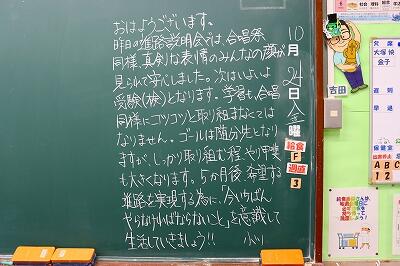 おはようございます。
昨日の進路説明会では、合唱祭
同様、真剣な表情のみんなの顔が
見られて安心しました。次はいよいよ
受験(検)となります。学習も、合唱
同様にコツコツと取り組まなくては
なりません。ゴールは随分先となり
ますが、しっかり取り組む程、やり甲斐
も大きくなります。5ヵ月後、希望する
進路を実現する為に、「今いちばん
やらなければならないこと」を意識して
生活していきましょう!!
10月24日(金)曜
給食
F
週直
3
吉田
欠席
大塚 悠
金子
遅刻
早退
保健室
出席停止
A B C
1 2